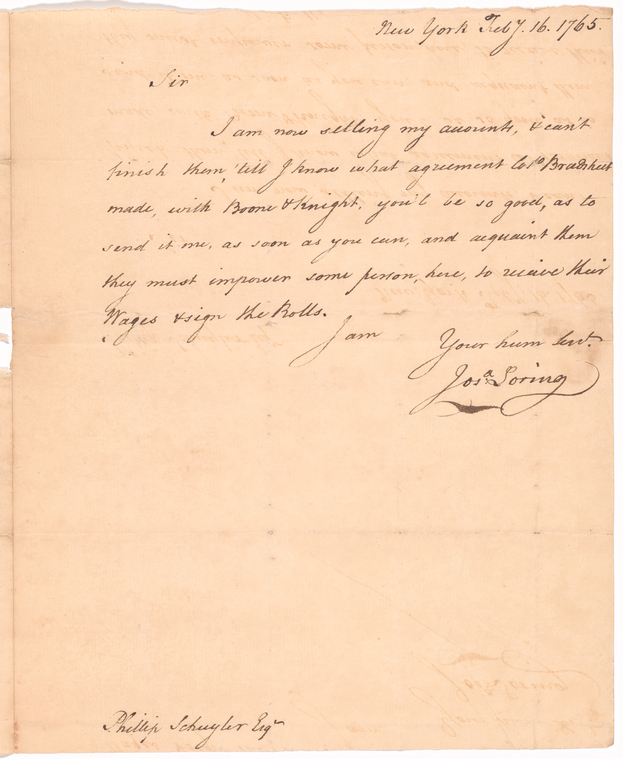 New York Feby. 16. 1765.
Sir
I am now setling my accounts, & can't
finish them, 'till I know what agreement Colo. Bradstreet
made, with Boone & Knight, you'l be so good, as to
send it me, as soon as you can, and acquaint them
they must impower some person, here, to recieve their
Wages & sign the Rolls.
I am
Your hum Servt.
Josa. Loring
Phillip Schuyler Esqr